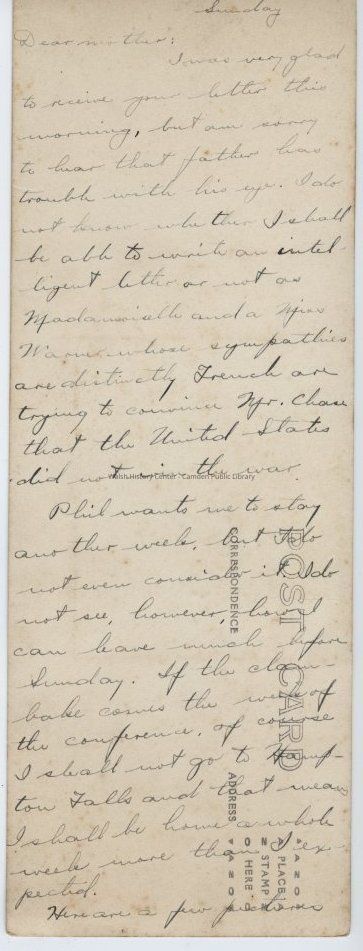 Sunday
Dear mother:
I was very glad
to receive your letter this
morning, but am sorry
to hear that father has
trouble with his eye. I do
not know whether I shall
be able to write an intel-
ligent letter or not as
Madamoiselle and a Miss
Warner whose sympathies
are distinctly French are
trying to convince Mr. Chase
that the United States
did not win the war.
Walsh History Center - Camden Public Library
Phil wants me to stay
another week, but I do
not even consider it. I do
not see, however, how I
can leave much before
Sunday. If the clam-
bake comes the week of
the conference, of course
I shall not go to Hamp-
ton Falls and that means
I shall be home a whole
week more than I ex-
pected.
Here are a few
POST CARD
CORRESPONDENCE
ADDRESS
PLACE
STAMP
HERE